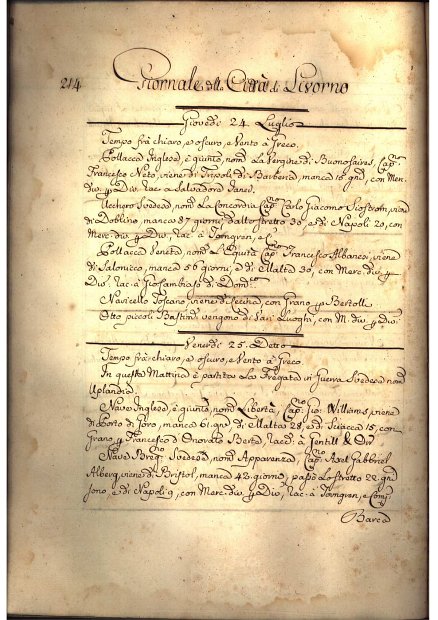 214 Giornale della Città di Livorno
Giovedi 24. Luglio
Tempo frà chiaro, e oscuro, e Vento à Greco.
Pollacca Inglese, è giunto, nom.ª La Vergine di Buonosaires, Cap.no
Francesco Neto, viene di Tripoli di Barberia, manca 16 gni, con Mer.
div.e p Div. rac. à Salvadore
Svedese, nom.ª La Concordia Cap.no Carlo Giacomo viene
di Doblino, manca 87 giorni, dallo stretto 30, e di Napoli 20, con
Merc. div.e p Div. rac. à Törngren, e C.
Pollacca Veneta, nom.ª L'Equità Cap.no Francesco Albanesi, viene
di Salonicco, manca 56 giorni, e di Malta 30, con Merc. div.e p
Div. rac. à di Dom.co
Navicello Toscano, viene di Cecina, con Grano p Bertolli
Otto piccoli Bastim.ti vengono di Vari Luoghi, con M. div.e p Div.
Venerdi 25. Detto
Tempo frà chiaro, e oscuro, e Vento à Greco
In questa Mattina è partita La Fregata in Guerra Svedese nom.ª
Uplandia.
Nave Inglese, è giunta, nom.ª Libertà, Cap.no Gio: Williams, viene
di Porto di Foro, manca 61 gni di Malta 28, e di Sciacca 15, con
Grano, p Francesco d'Onorato Berte, à Gentill & Orr
Nave Svedese, nom.ª Apparenza, Cap.no Axel Gabbriel
Alberg, viene di Bristol, manca 42 giorni, passò Lo stretto 22 gni
sono, e di Napoli 9, con Merc. div.e p Div. rac. à Törngren, e Comp.
Barca